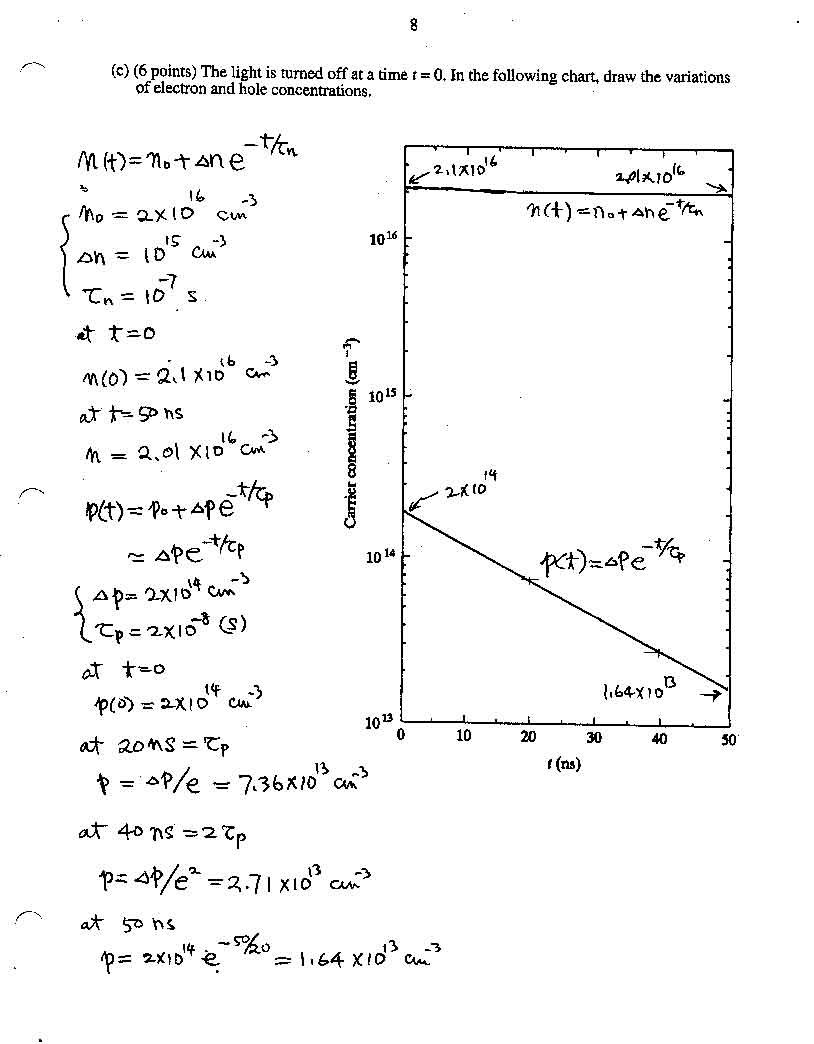 8
(c) (6 points) The light is turned off at a time t = 0. In the following chart, draw the variations
of electron and hole concentrations.
n(t) = n₀ + Δn e^{-t/τn}
n₀ = 2×10¹⁶ cm⁻³
Δn = 10¹⁵ cm⁻³
τn = 10⁻⁷ s.
at t=0
n(0) = 2.1 ×10¹⁶ cm⁻³
at t=50 ns
n = 2.01 ×10¹⁶ cm⁻³
p(t) = p₀ + Δp e^{-t/τp}
≃ Δp e^{-t/τp}
Δp = 2×10¹⁴ cm⁻³
τp = 2×10⁻⁸ (s)
at t=0
p(0) = 2×10¹⁴ cm⁻³
at 20 ns = τp
p = Δp/e = 7.36×10¹³ cm⁻³
at 40 ns = 2τp
p = Δp/e² = 2.71 ×10¹³ cm⁻³
at 50 ns
p = 2×10¹⁴ e^{-50/20} = 1.64 ×10¹³ cm⁻³
2.1×10¹⁶
2.01×10¹⁶
n(t) = n₀ + Δn e^{-t/τn}
10¹⁶
10¹⁵
2×10¹⁴
10¹⁴
p(t) = Δp e^{-t/τp}
1.64×10¹³
10¹³
Carrier concentration (cm⁻³)
0 10 20 30 40 50
t (ns)